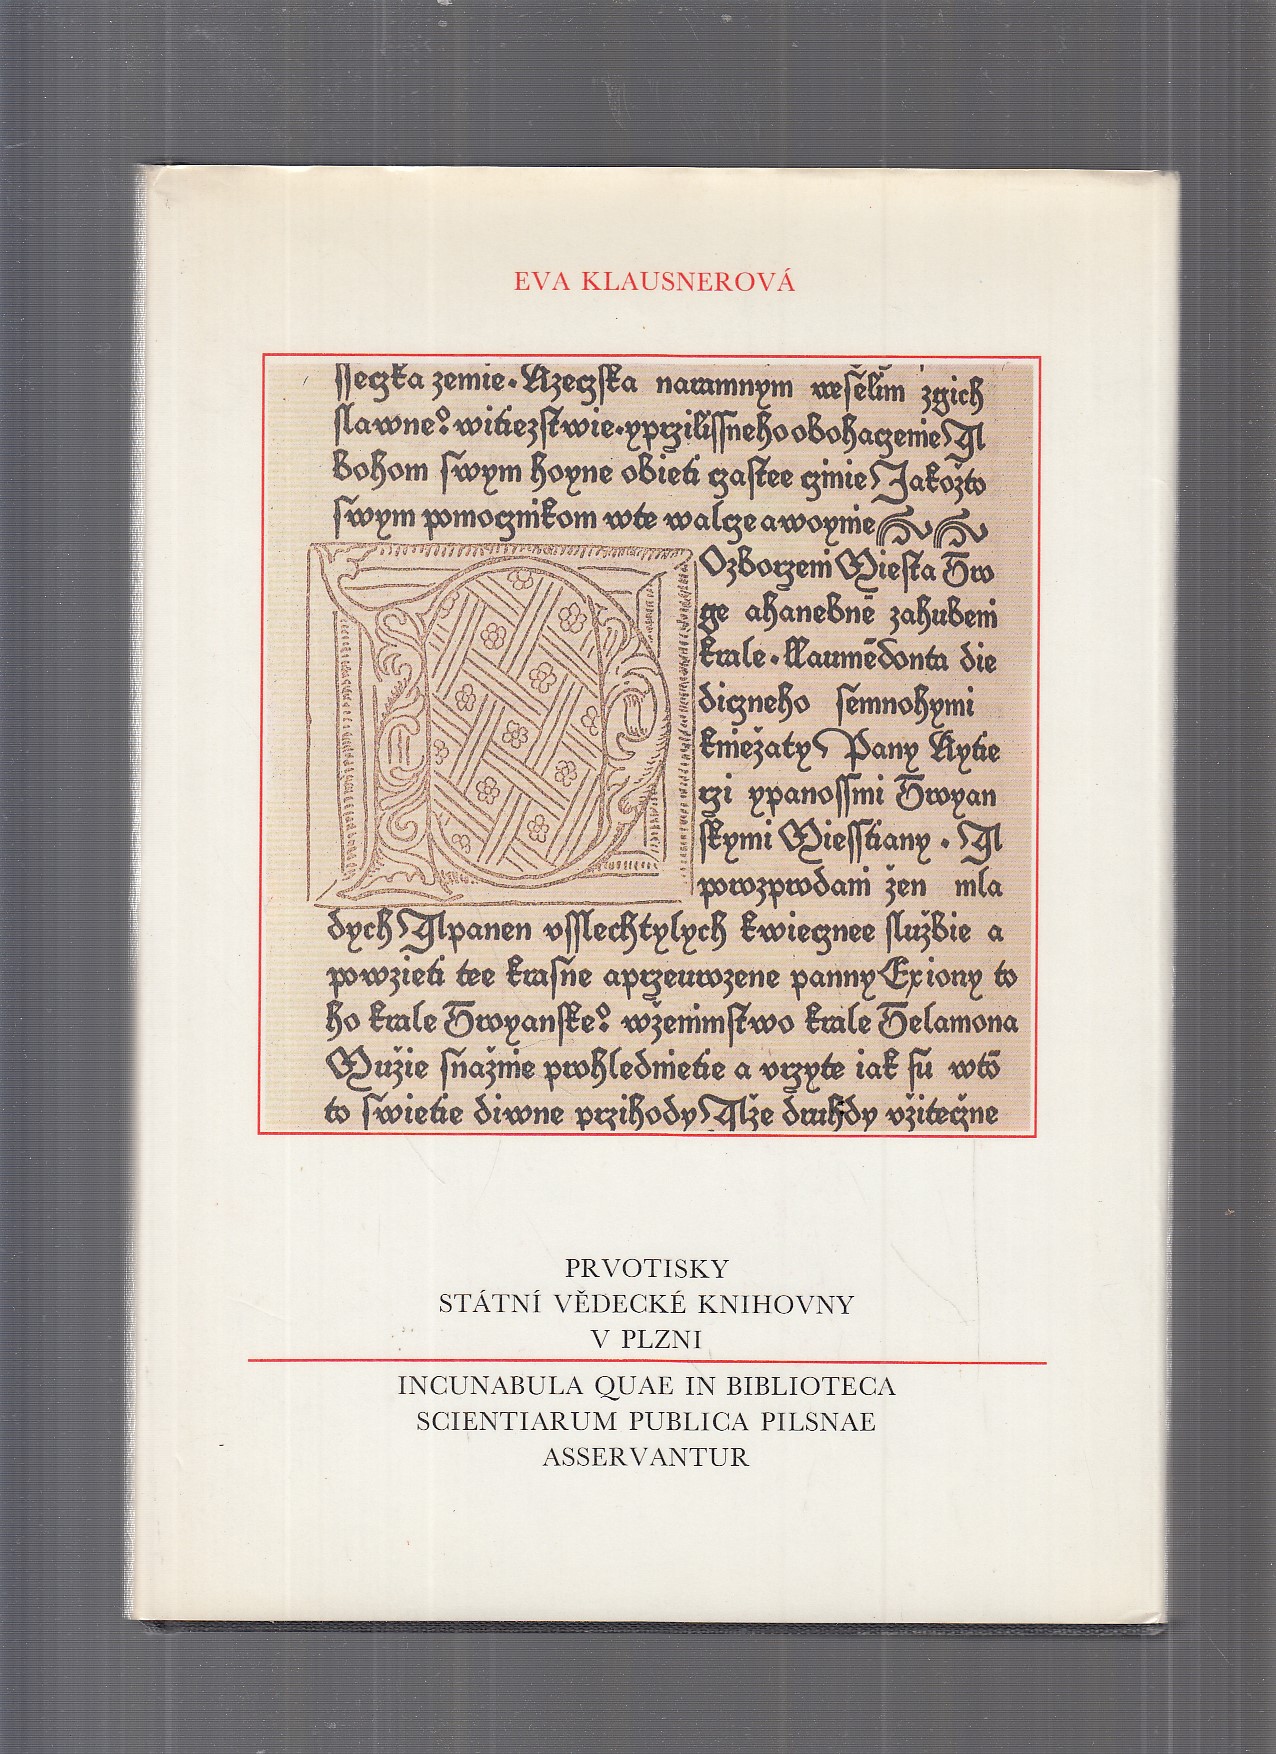 EVA KLAUSNEROVÁ
ssegka zemie. Rzegska naramnym weselim zgich
slawne? witiezstwie. yprzilissneho obohaczenie A
bohom swym hoyne obieti czastee czinie Jakožto
swym pomocznikom wte walcze a woynie
Ozborzeni Miesta Tro
ge ahanebnē zahubeni
krale. Laumēdonta die
diczneho semnohymi
kniežaty Pany Rytie
rzi ypanossmi Troyan
skymi Miesstiany. A
porozprodani žen mla
dych Apanen vsslechtylych kwiecznee službie a
powzieti tee krasne aprzeurozene panny Exiony to
ho krale Troyanske? wženimstwo krale Telamona
Mužie snažnie prohlednietie a vrzyte iak su wtō
to swietie diwne przihody Aže druhdy vžiteczne
PRVOTISKY
STÁTNÍ VĚDECKÉ KNIHOVNY
V PLZNI
INCUNABULA QUAE IN BIBLIOTECA
SCIENTIARUM PUBLICA PILSNAE
ASSERVANTUR